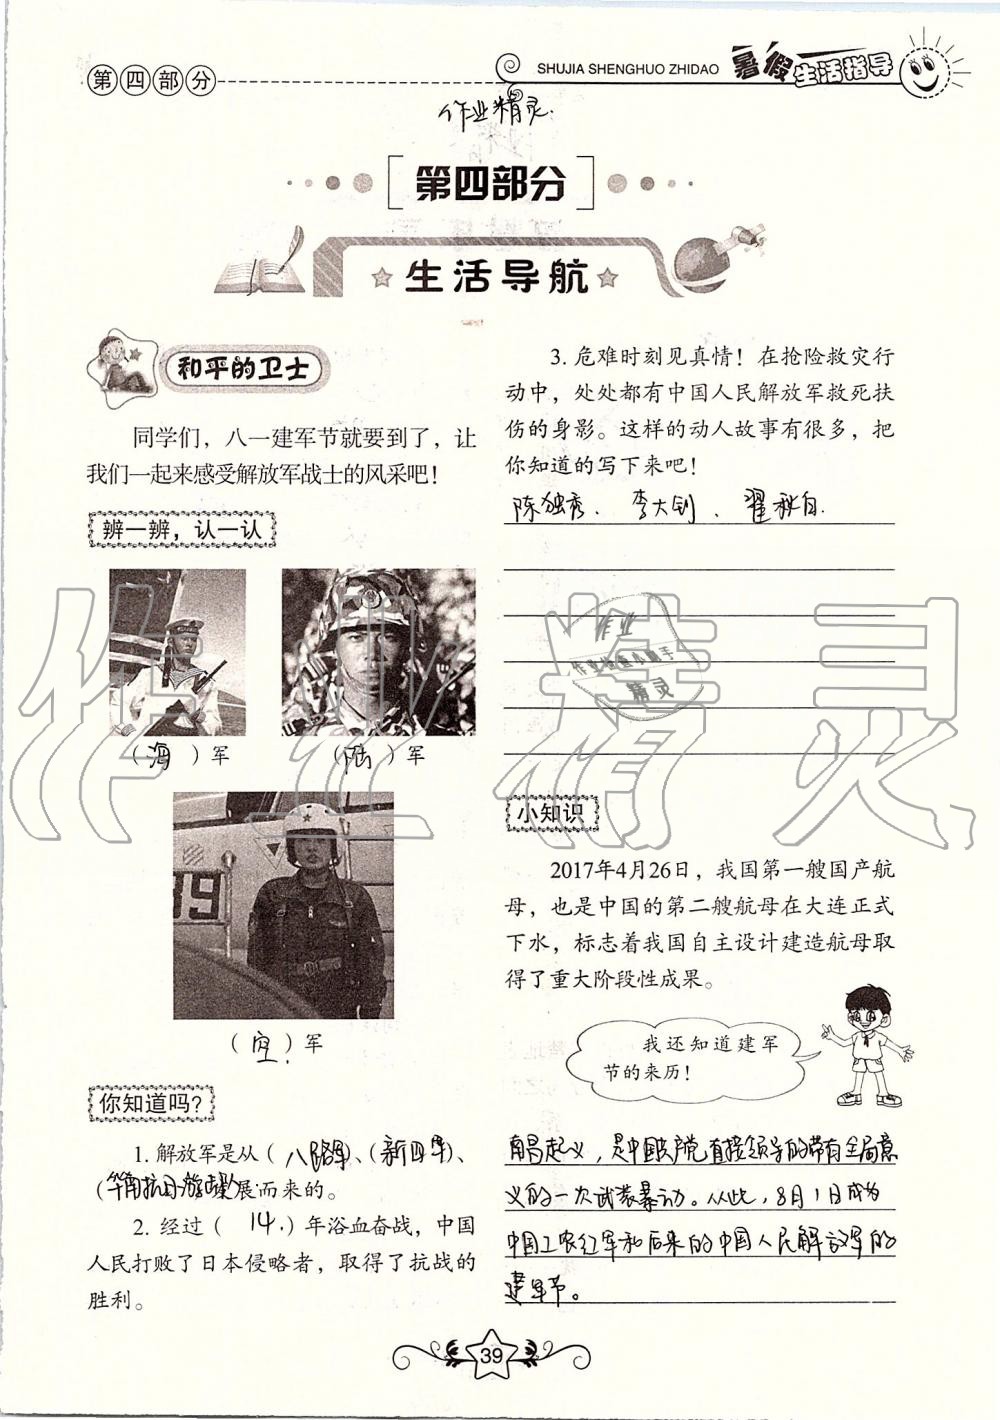 第四部分
SHUJIA SHENGHUO ZHIDAO
暑假生活指导
作业精灵
第四部分
生活导航
和平的卫士
同学们，八一建军节就要到了，让
我们一起来感受解放军战士的风采吧！
辨一辨，认一认
（海）军
（陆）军
（空）军
你知道吗？
1. 解放军是从（八路军）、（新四军）、
（华南抗日游击队）发展而来的。
2. 经过（14）年浴血奋战，中国
人民打败了日本侵略者，取得了抗战的
胜利。
3. 危难时刻见真情！在抢险救灾行
动中，处处都有中国人民解放军救死扶
伤的身影。这样的动人故事有很多，把
你知道的写下来吧！
陈独秀、李大钊、瞿秋白.
作业
作业检查小助手
精灵
小知识
2017年4月26日，我国第一艘国产航
母，也是中国的第二艘航母在大连正式
下水，标志着我国自主设计建造航母取
得了重大阶段性成果。
我还知道建军
节的来历！
南昌起义，是中国共产党直接领导的带有全局意
义的一次武装暴动。从此，8月1日成为
中国工农红军和后来的中国人民解放军的
建军节。
39
作业精灵